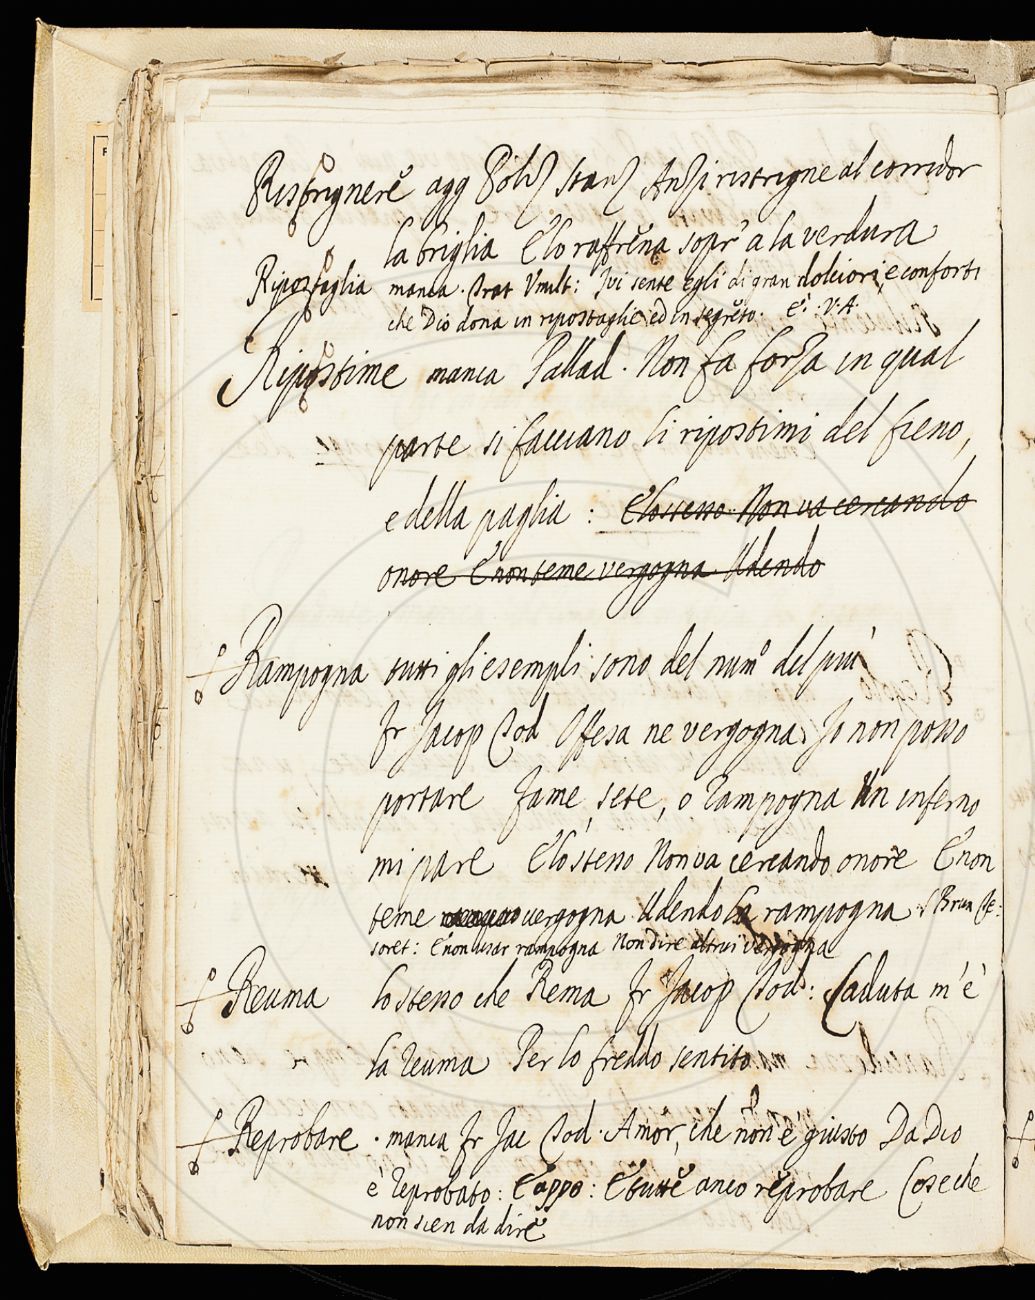 Ristrignere agg Poliz Stanz Anzi ristrigne al corridor
la briglia E lo raffrena sopr' a la verdura
Ripostaglia manca. Trat Umilt: Ivi sente egli di gran dolciori, e conforti
che Dio dona in ripostaglie, ed in segreto. E. V. A.
Ripostime manca Pallad. Non fa forza in qual
parte si facciano li ripostimi del fieno,
e della paglia: E lo stesso Non va cercando
onore E non teme vergogna Udendo
Rampogna tutti gli esempli sono del num.o del più
Fr Jacop Tod Offesa ne vergogna Io non posso
portare Fame, sete, o rampogna Un inferno
mi pare E lo stesso Non va cercando onore E non
teme vergogna Udendo la rampogna S Brun Te:
soret: E non usar rampogna Non dire altrui vergogna
Reuma lo stesso che Rema Fr Jacop Tod: Caduta m'è
la reuma Per lo freddo sentito
Reprobare. manca Fr Jac Tod. Amor, che non è giusto Da Dio
è reprobato: E appo: E tutte anco reprobare Cose che
non sien da dire